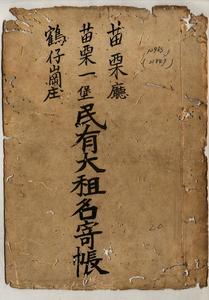 苗栗廳
苗栗一堡民有大租名寄帳
鶴仔崗庄